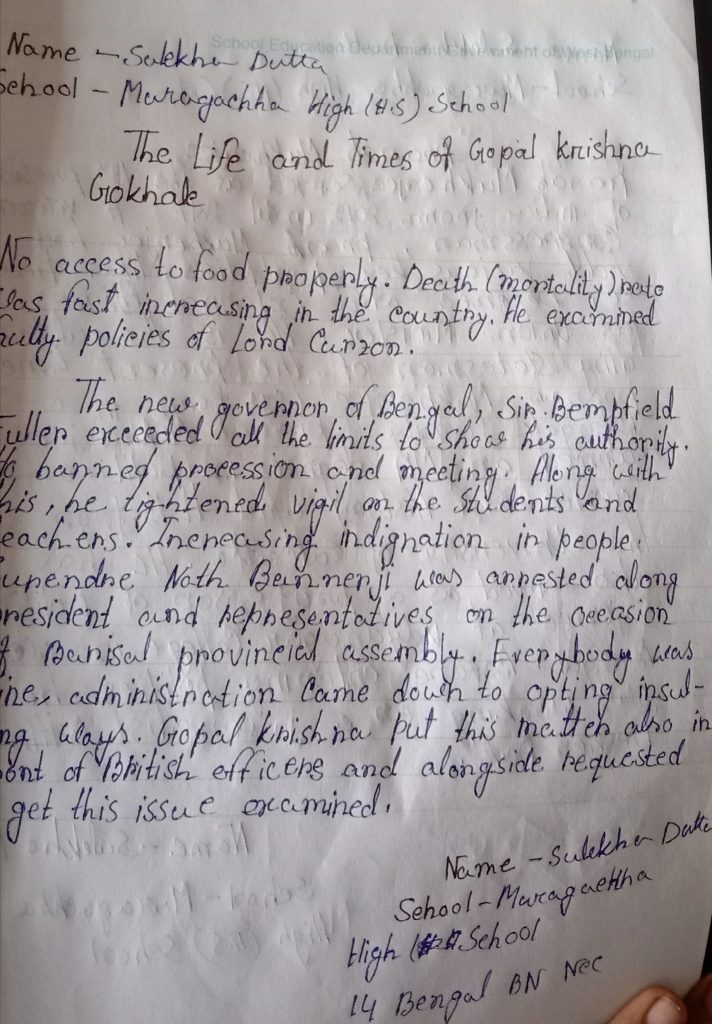 School Education Department, Government of West Bengal
Name - Sulekha Dutta
School - Muragachha High (H.S) School
The Life and Times of Gopal Krishna
Gokhale
No access to food properly. Death (mortality) rate
was fast increasing in the country. He examined
aulty policies of Lord Curzon.
The new governor of Bengal, Sir Bempfield
Fuller exceeded all the limits to show his authority.
banned procession and meeting. Along with
his, he tightened vigil on the students and
eachers. Increasing indignation in people.
urendre Nath Bannerji was arrested along
president and representatives on the occasion
f Barisal provincial assembly. Everybody was
ine, administration came down to opting insul-
ng ways. Gopal krishna put this matter also in
ont of British officers and alongside requested
get this issue examined.
Name - Sulekha Dutta
School - Muragachha
High School
14 Bengal BN Ncc